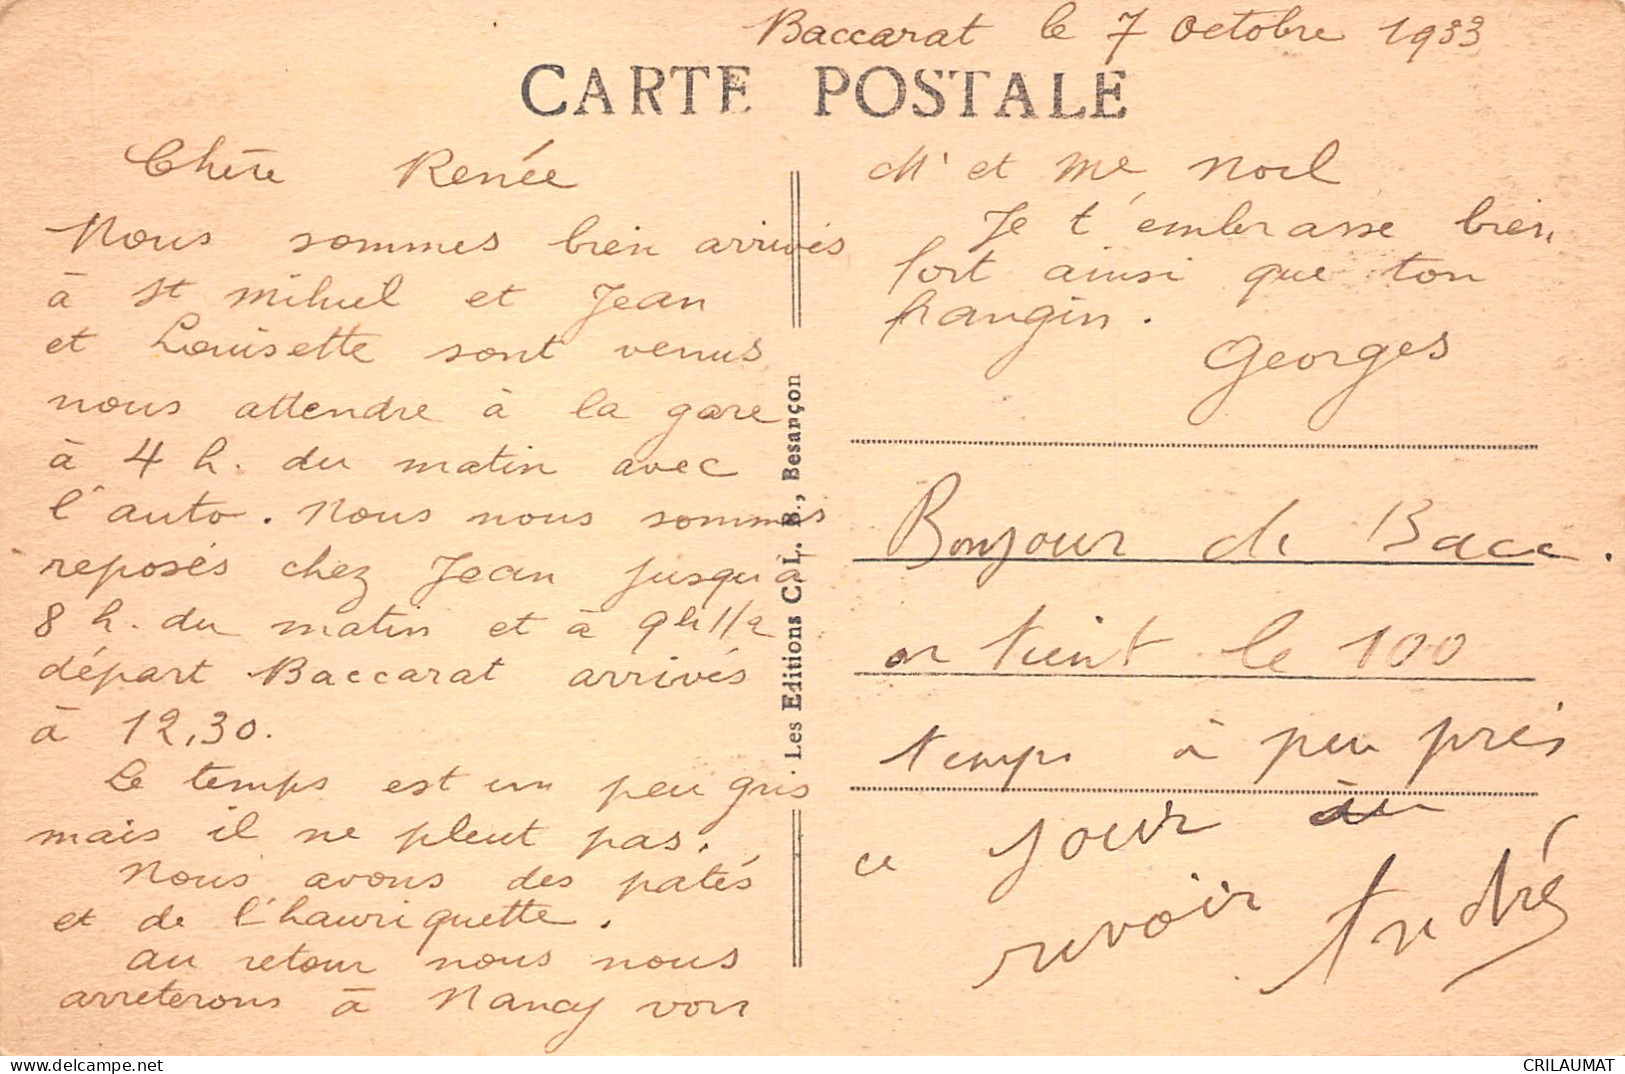 Baccarat le 7 Octobre 1933
CARTE POSTALE
Chère Renée
Nous sommes bien arrivés
à St Mihiel et Jean
et Louisette sont venus
nous attendre à la gare
à 4 h. du matin avec
l'auto. Nous nous sommes
reposés chez Jean jusqu'à
8 h. du matin et à 9h 1/2
départ Baccarat arrivés
à 12,30.
Le temps est un peu gris
mais il ne pleut pas.
Nous avons des patés
et de l'hauriquette.
au retour nous nous
arreterons à Nancy voir
Les Editions C. L. B., Besançon
Mr et Me Noel
Je t'embrasse bien
fort ainsi que ton
frangin.
Georges
Bonjour de Bacc.
on tient le 100
temps à peu près
ce jour au
revoir André
CRILAUMAT
delcampe.net